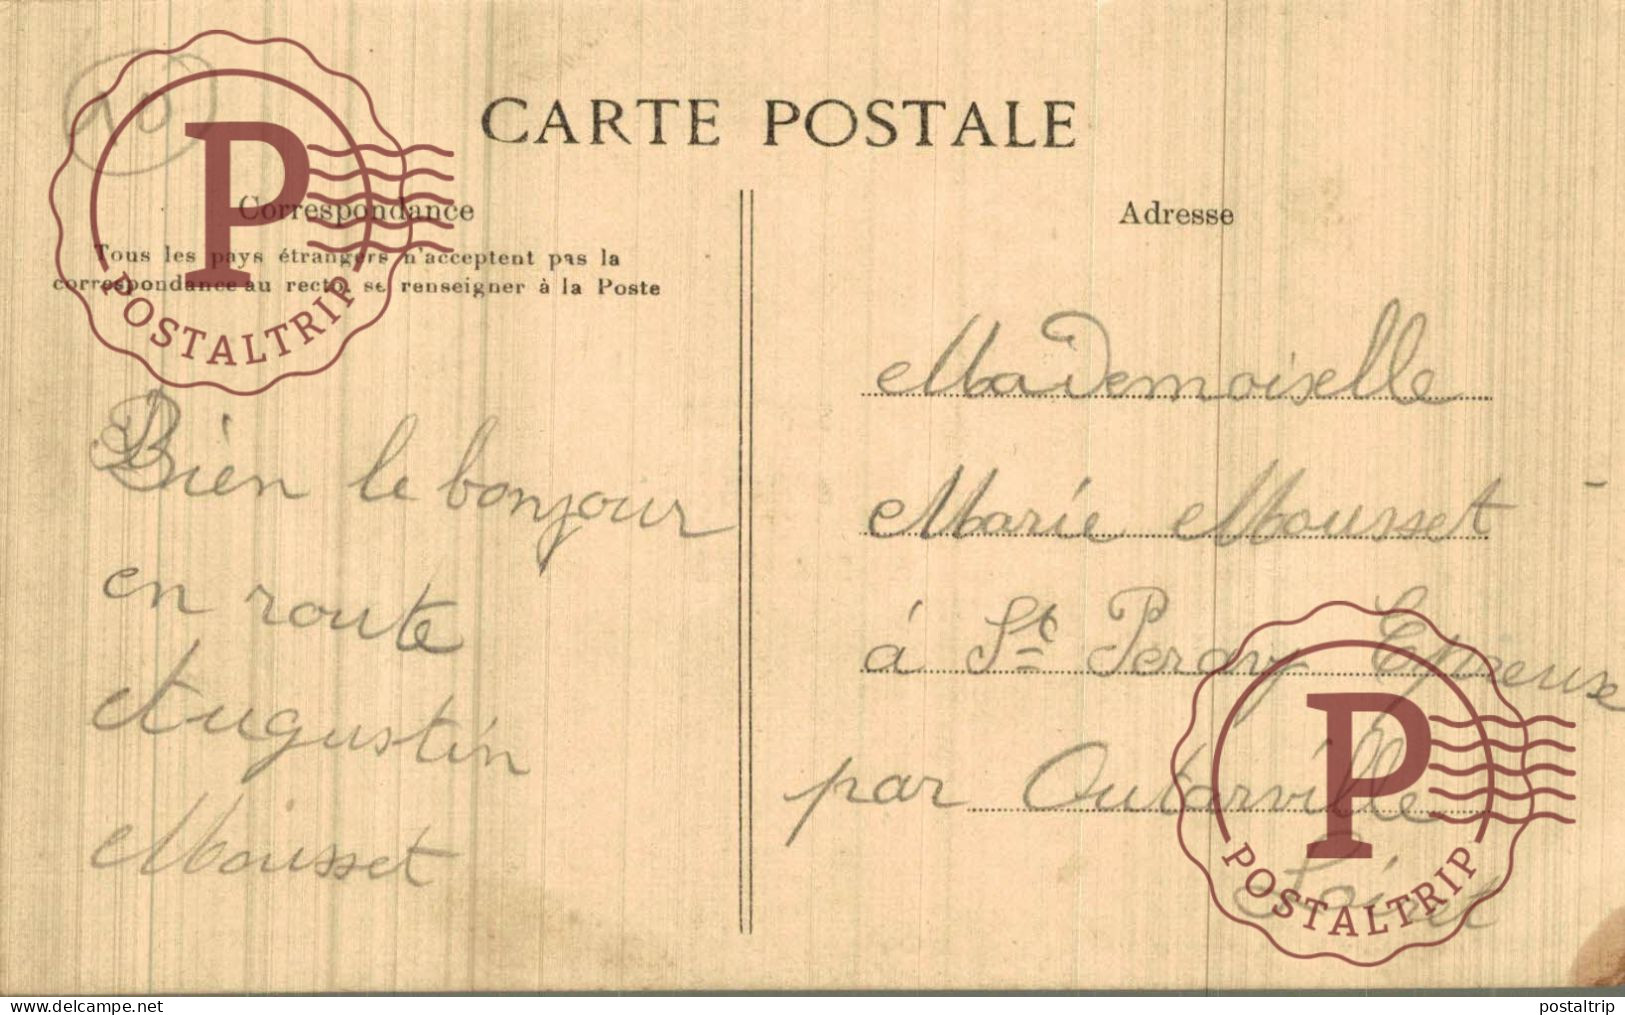 CARTE POSTALE
Correspondance
Tous les pays étrangers n'acceptent pas la
correspondance au recto, se renseigner à la Poste
Bien le bonjour
en route
Augustin
Mousset
Adresse
MaDemoiselle
Marie Mousset
á St Peravy Epreux
par Outarville
Loiret
10
P
POSTALTRIP
P
POSTALTRIP
www.delcampe.net
postaltrip